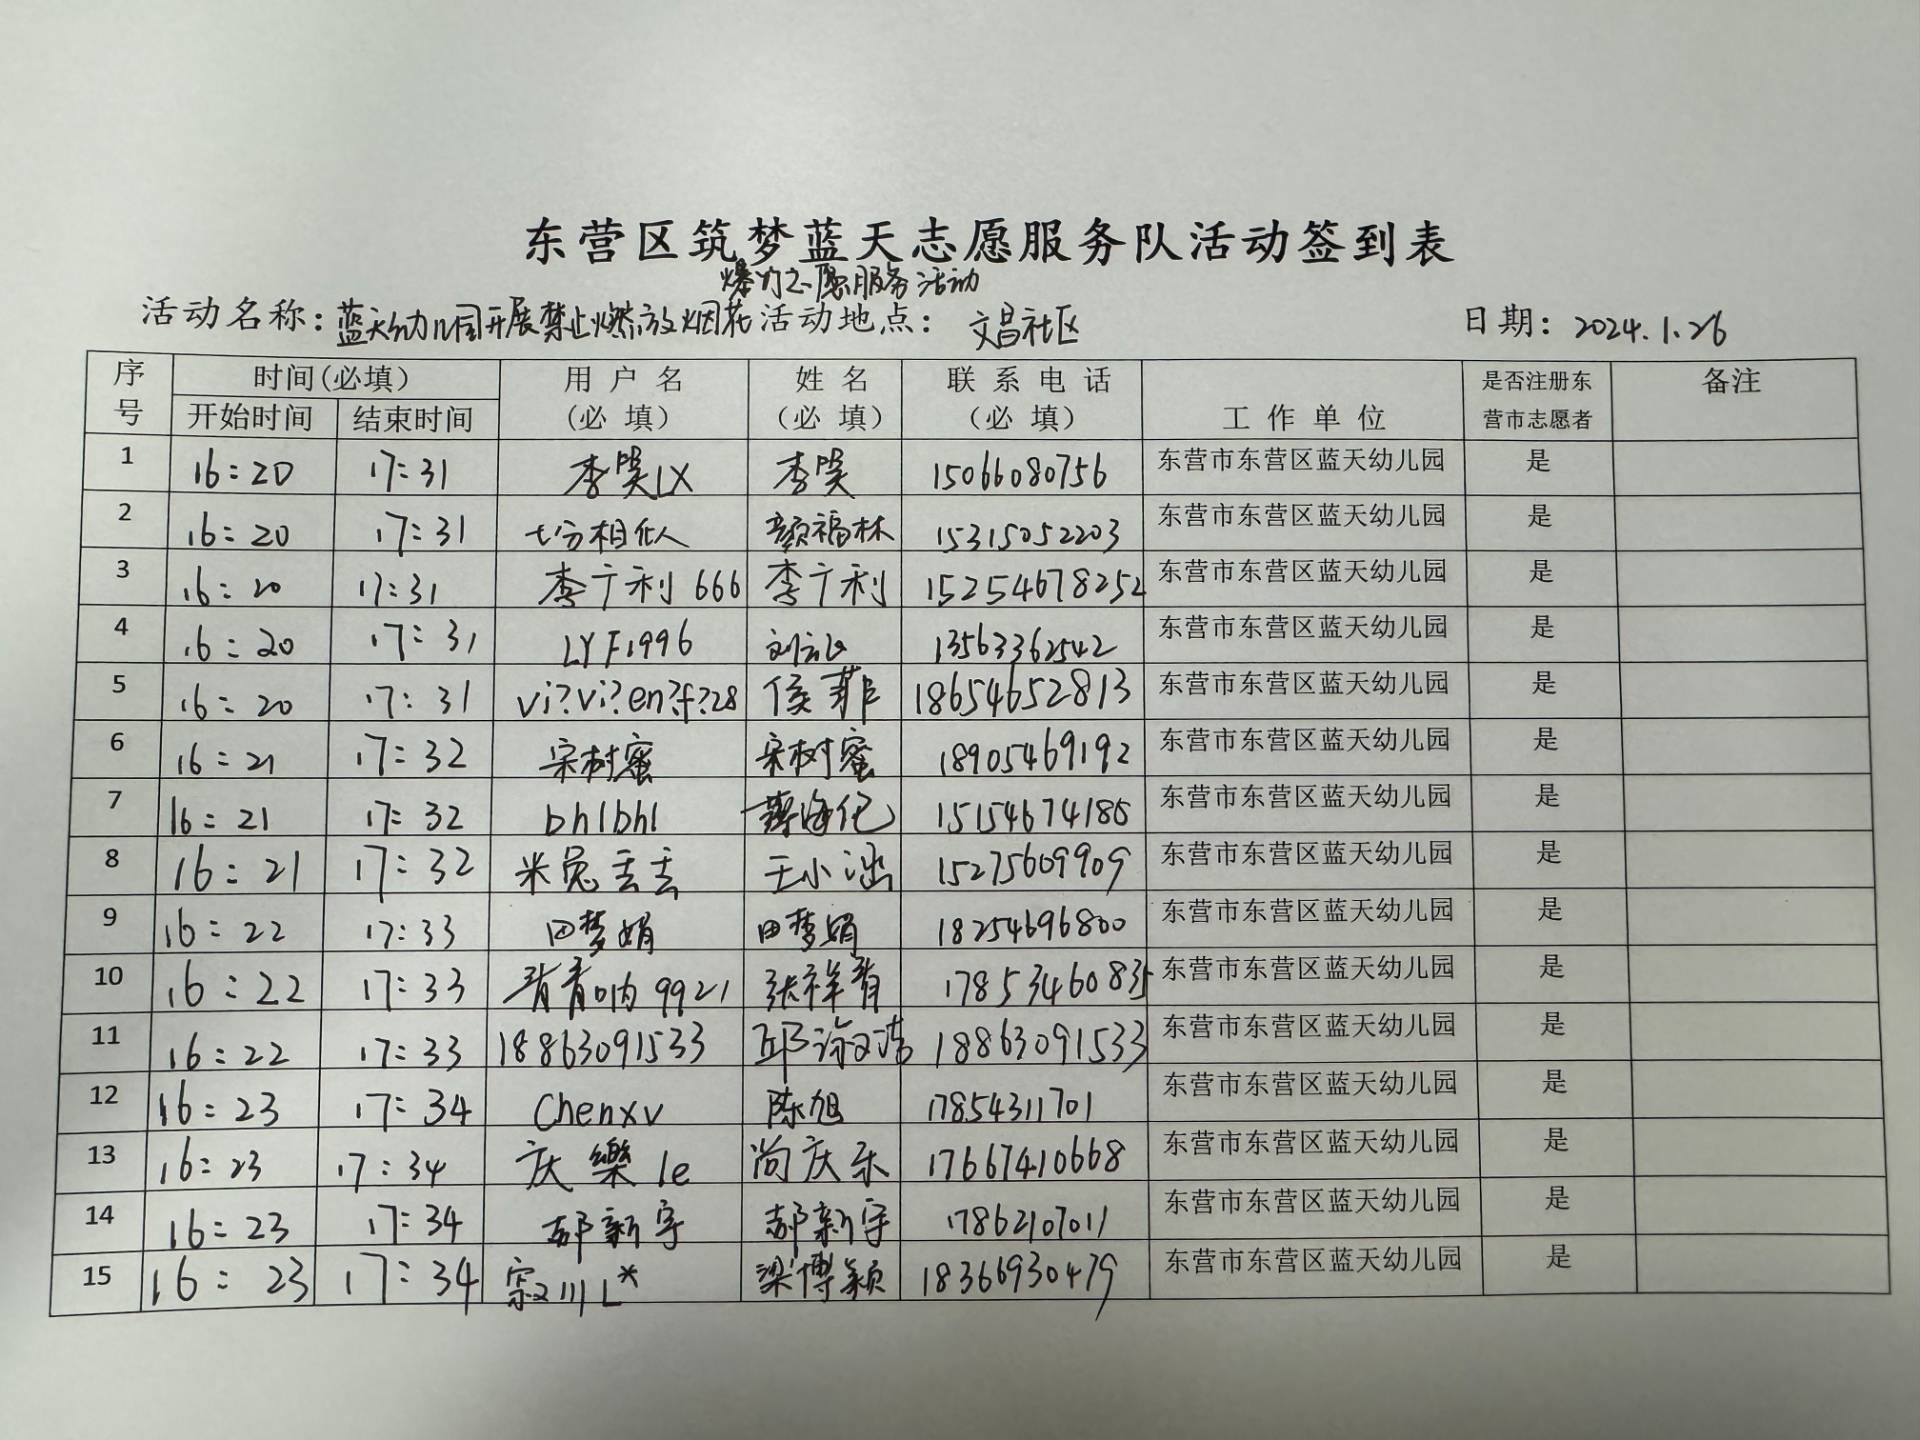 东营区筑梦蓝天志愿服务队活动签到表
爆竹志愿服务活动
活动名称：蓝天幼儿园开展禁止燃放烟花 活动地点：文昌社区 日期：2024.1.26
序号 时间(必填) 用户名(必填) 姓名(必填) 联系电话(必填) 工作单位 是否注册东营市志愿者 备注
开始时间 结束时间
1 16:20 17:31 李昊LX 李昊 15066080756 东营市东营区蓝天幼儿园 是
2 16:20 17:31 七分相似人 颜福林 15315052203 东营市东营区蓝天幼儿园 是
3 16:20 17:31 李广利666 李广利 15254678252 东营市东营区蓝天幼儿园 是
4 16:20 17:31 LYF1996 13563362542 东营市东营区蓝天幼儿园 是
5 16:20 17:31 vi?vi?en?f?28 侯菲 18654652813 东营市东营区蓝天幼儿园 是
6 16:21 17:32 宋树蜜 宋树蜜 18905469192 东营市东营区蓝天幼儿园 是
7 16:21 17:32 bhlbhl 15154674185 东营市东营区蓝天幼儿园 是
8 16:21 17:32 米兔丢丢 王小涵 15275609909 东营市东营区蓝天幼儿园 是
9 16:22 17:33 田梦娟 田梦娟 18254696800 东营市东营区蓝天幼儿园 是
10 16:22 17:33 青青呐9921 张祥青 17853460835 东营市东营区蓝天幼儿园 是
11 16:22 17:33 18863091533 18863091533 东营市东营区蓝天幼儿园 是
12 16:23 17:34 Chenxv 陈旭 17854311701 东营市东营区蓝天幼儿园 是
13 16:23 17:34 庆樂le 尚庆乐 17667410668 东营市东营区蓝天幼儿园 是
14 16:23 17:34 郝新宇 郝新宇 17862107011 东营市东营区蓝天幼儿园 是
15 16:23 17:34 梁博颖 18366930479 东营市东营区蓝天幼儿园 是